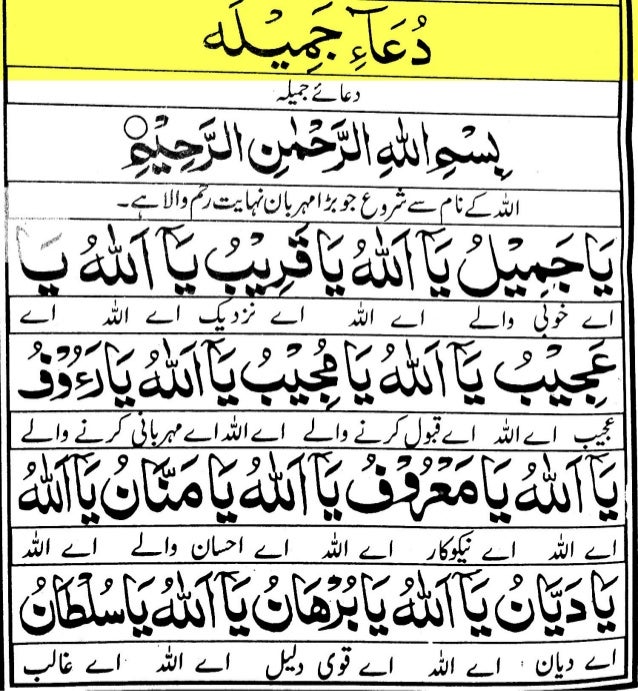 دُعَآءِ جَمِیْلَه
دعائے جمیلہ
بِسْمِ اللهِ الرَّحْمٰنِ الرَّحِیْمِ○
اللہ کے نام سے شروع جو بڑا مہربان نہایت رحم والا ہے۔
یَا جَمِیْلُ یَآ اَللهُ یَا قَرِیْبُ یَآ اَللهُ یَا
اے خوبی والے اے اللہ اے نزدیک اے اللہ اے
عَجِیْبُ یَآ اَللهُ یَا مُجِیْبُ یَآ اَللهُ یَا رَءُوْفُ
عجیب اے اللہ اے قبول کرنے والے اے اللہ اے مہربانی کرنے والے
یَآ اَللهُ یَا مَعْرُوْفُ یَآ اَللهُ یَا مَنَّانُ یَآ اَللهُ
اے اللہ اے نیکوکار اے اللہ اے احسان والے اے اللہ
یَا دَیَّانُ یَآ اَللهُ یَا بُرْهَانُ یَآ اَللهُ یَا سُلْطَانُ
اے دیان اے اللہ اے قوی دلیل اے اللہ اے غالب